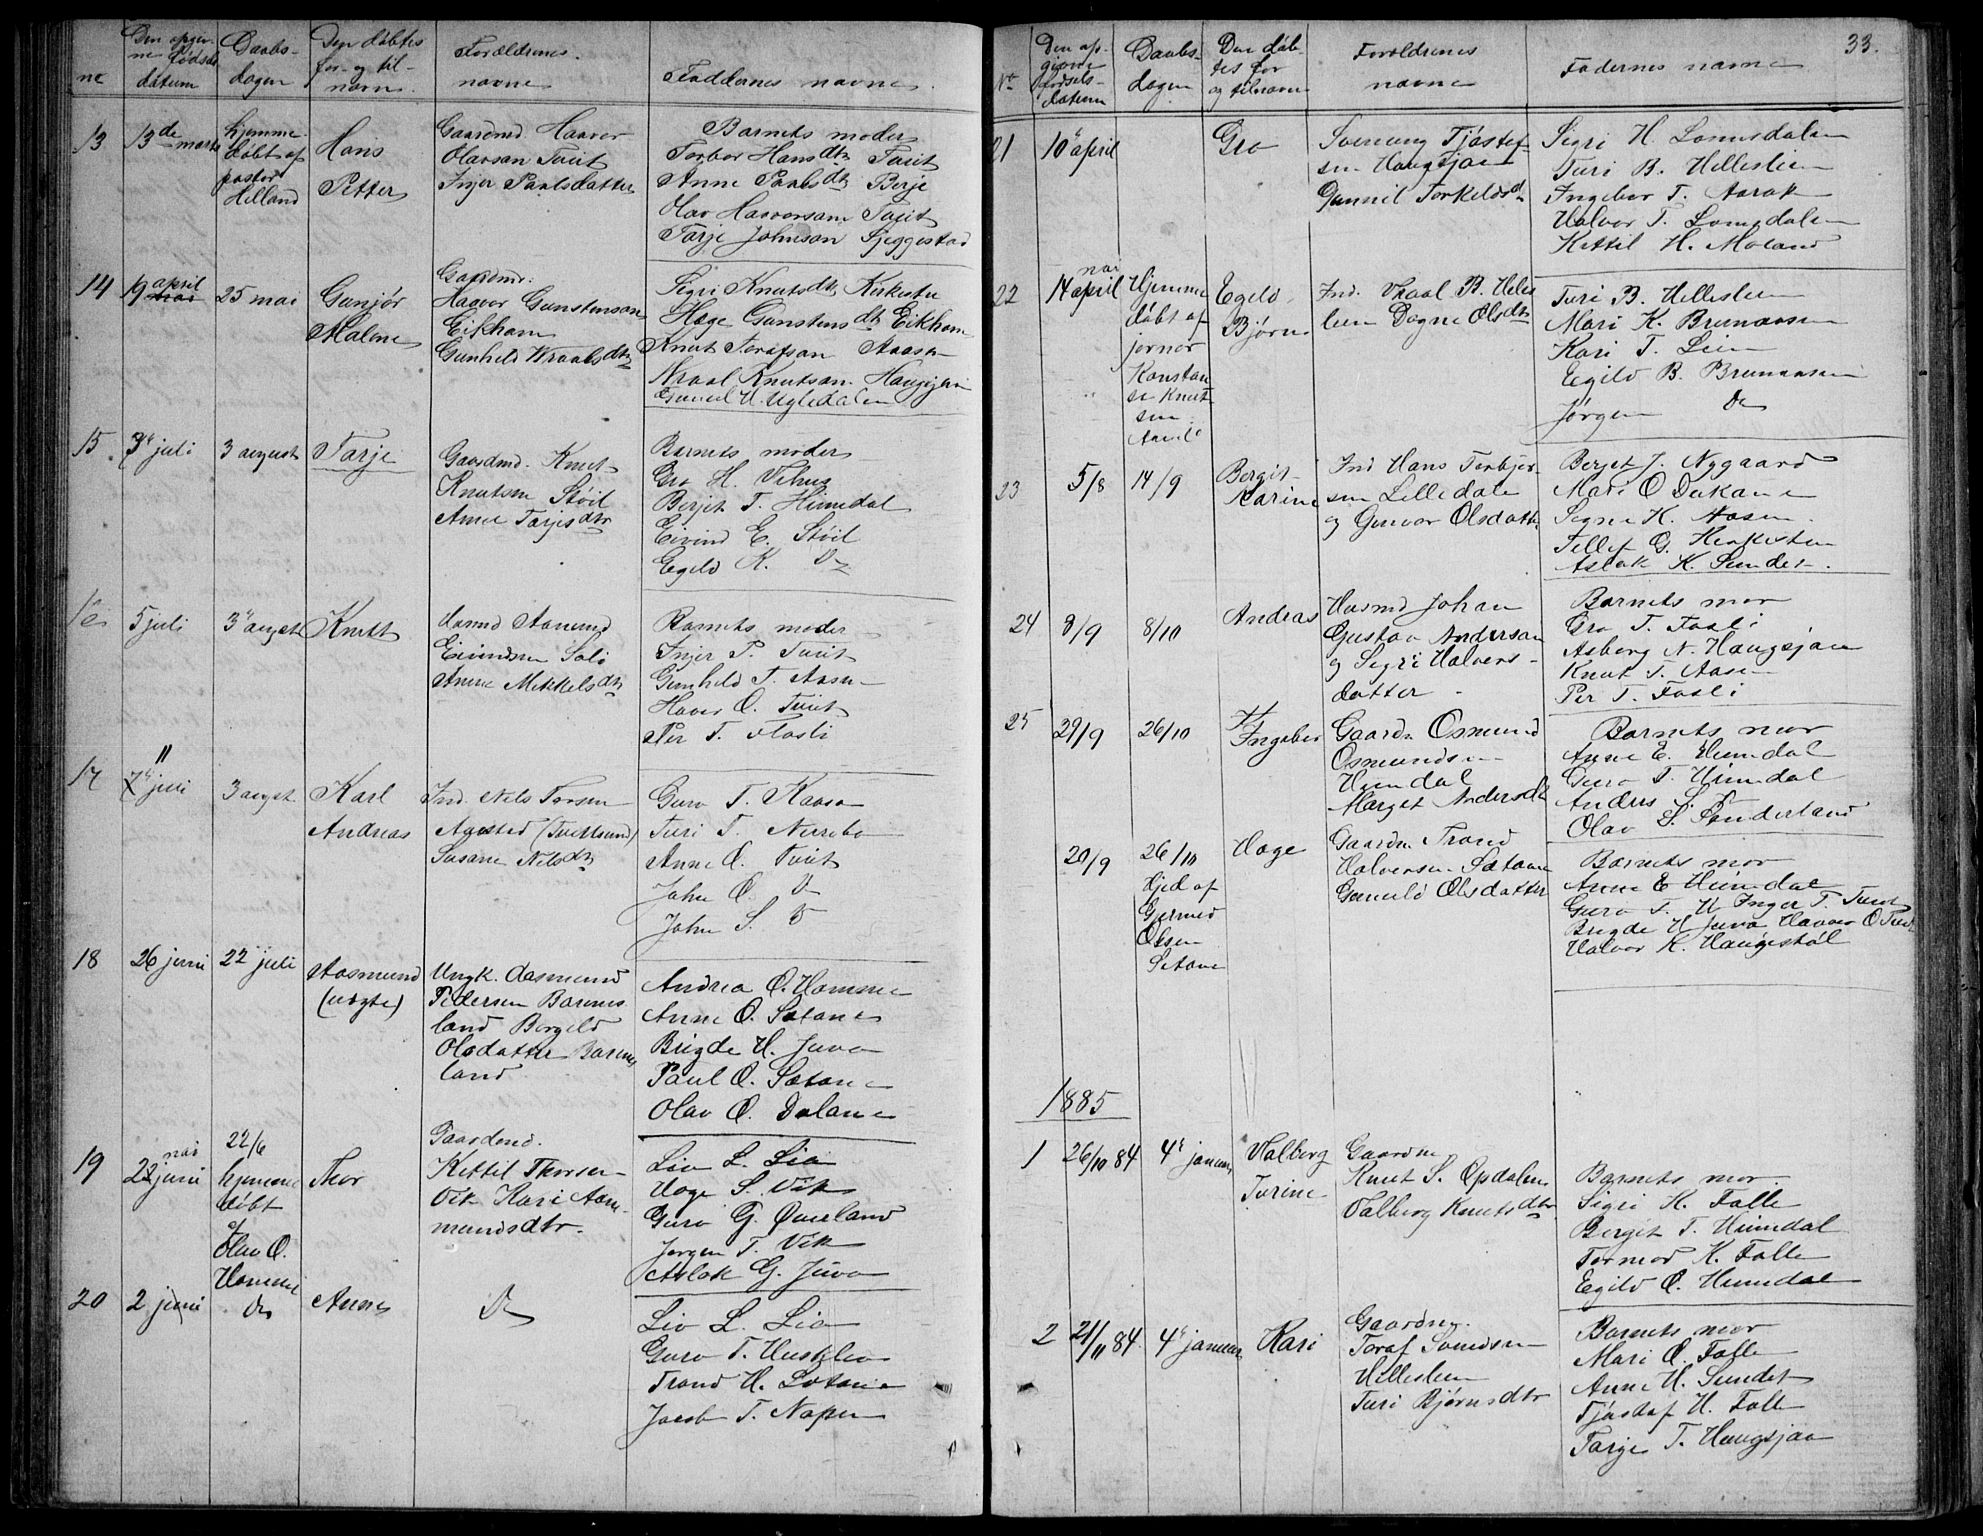 nr
Den opgiv-
ne fødsels
datum
Daabs-
dagen
Den døbtes
for- og til-
navn
Forældrenes
navne
Faddernes navne.
13
13de marts
hjemme-
døbt af
pastor
Helland
Hans
Petter
Gaardmd Haavor
Olavsan Tveit
Injer Paalsdatter
Barnets moder
Torbor Hansdtr Tveit
Anne Paalsdtr Berje
Olav Haavorsan Tveit
Tarje Johnsan Sjeggestad
14
19 april
mai
25 mai
Gunjør
Malene
Gaardmd.
Haavor Gunstensan
Eikhom
Gunhild Wraalsdtr
Sigri Knutsdtr Kirkestu
Hæge Gunstensdtr Eikhom
Knut Torafsan Aasen
Wraal Knutsan Haugsjaa
Gunuil H. Ugledalen
15
3 juli
3 august
Tarje
Gaardmd. Knut
Knutsen Støil
Anne Tarjesdtr
Barnets moder
Gro H. Vehus
Berjet T. Himdal
Eivind E. Støil
Egild K. Do
16
5 juli
3 augst
Knut
Husmd Aanund
Eivindsen Soli
Anne Mikkelsdtr
Barnets moder
Injer P. Tveit
Gunhild T. Aasen
Haver O. Tveit
Per T. Fosli
17
11
7 juni
3 augst
Karl
Andreas
Ind. Nils Torsen
Agested (Tvertsund)
Susane Nilsdtr
Guro T. Raasen
Turi T. Nerrebo
Anne O. Tveit
John O. Do
John S. Do
18
26 juni
22 juli
Aasmund
(uægte)
Ungk. Aasmund
Pedersen Barnes
land Borgild
Olsdatter Barnes
land
Andrea O. Homme
Anne O. Sætane
Brigde H. Juva
Paul O. Sætane
Olav O. Dalane
19
mai
22 juni
22/6
hjemme
døbt
af
Olav O.
Homme
Thor
Gaardmd.
Kettil Thorsen
Vik Kari Aan-
mundsdtr.
Liv L. Lia
Hæge S. Vik
Guro G. Øverland
Jørgen T. Vik
Aslak G. Juva
20
2 juni
Do
Anne
Do
Liv L. Lia
Guro T. Husklev
Trond H. Sætane
Jacob T. Napen
33.
No
Den op-
givne
fødsels-
datum
Daabs-
dagen
Den døb-
tes for
og tilnavn
Foreldrenes
navne
Fadernes navne
21
10 april
Gro
Sveinung Tjøstof-
sen Haugsjaa
Gunuil Torkelsdtr
Sigri H. Lomsdalen
Turi B. Helleslien
Ingebor T. Aarak
Halvor T. Lomsdalen
Kettil H. Moland
22
mai
14 april
Hjemme
døbt af
jornor
Konstan-
se Knut-
sen
Egild
Bjørn
Ind. Vraal B. Heles
lien Dagne Olsdtr
Turi B. Helleslien
Mari K. Brunaasen
Kari T. Lien
Egild B. Brunaasen
Jørgen Do
23
5/8
14/9
Bergit
Karine
Ind Hans Torbjør-
sen Lilledalen
og Gunvor Olsdatter
Berjet J. Nygaard
Mari O Dukane
Signe K. Aasen
Tellef G. Kirkesten
Aslak K. Sundet.
24
8/9
8/10
Andreas
Husmd Johan
Gustav Andersan
og Segri Halvors-
datter
Barnets mor
Gro T. Fosli
Asborg N. Haugsjaa
Knut T. Aasen
Per T. Fosli
25
29/9
26/10
Ingebor
Gaardm Osmund
Osmundsen
Himdal
Marget Andersdtr
Barnets mor
Anne E. Himdal
Guro T. Himdal
Andres S.
Olav S. Sunderland
20/9
26/10
Hjed af
Gjermd
Olsen
Setane
Hæge
Gaardm Trond
Halvorsen Sætane
Gunild Olsdatter
Barnets mor
Anne E Himdal
Guro T. H Inger T. Tveit
Brigde H Juva Haavor O Tveit
Halvor K. Haugestøl
1885
1
26/10 84
4 januar
Valborg
Turine
Gaardm
Knut S. Opdalen
Valborg Knutsdtr
Barnets mor.
Sigri K. Falle
Bergit T. Himdal
Tormod K. Falle
Egild O. Himdal
2
21/11 84
4 januar
Kari
Gaardm.
Toraf Svendsen
Helleslien
Turi Bjørnsdtr
Barnets mor
Mari O. Falle
Anne H. Sundet
Tjøstaf H. Falle
Tarje T. Haugsjaa